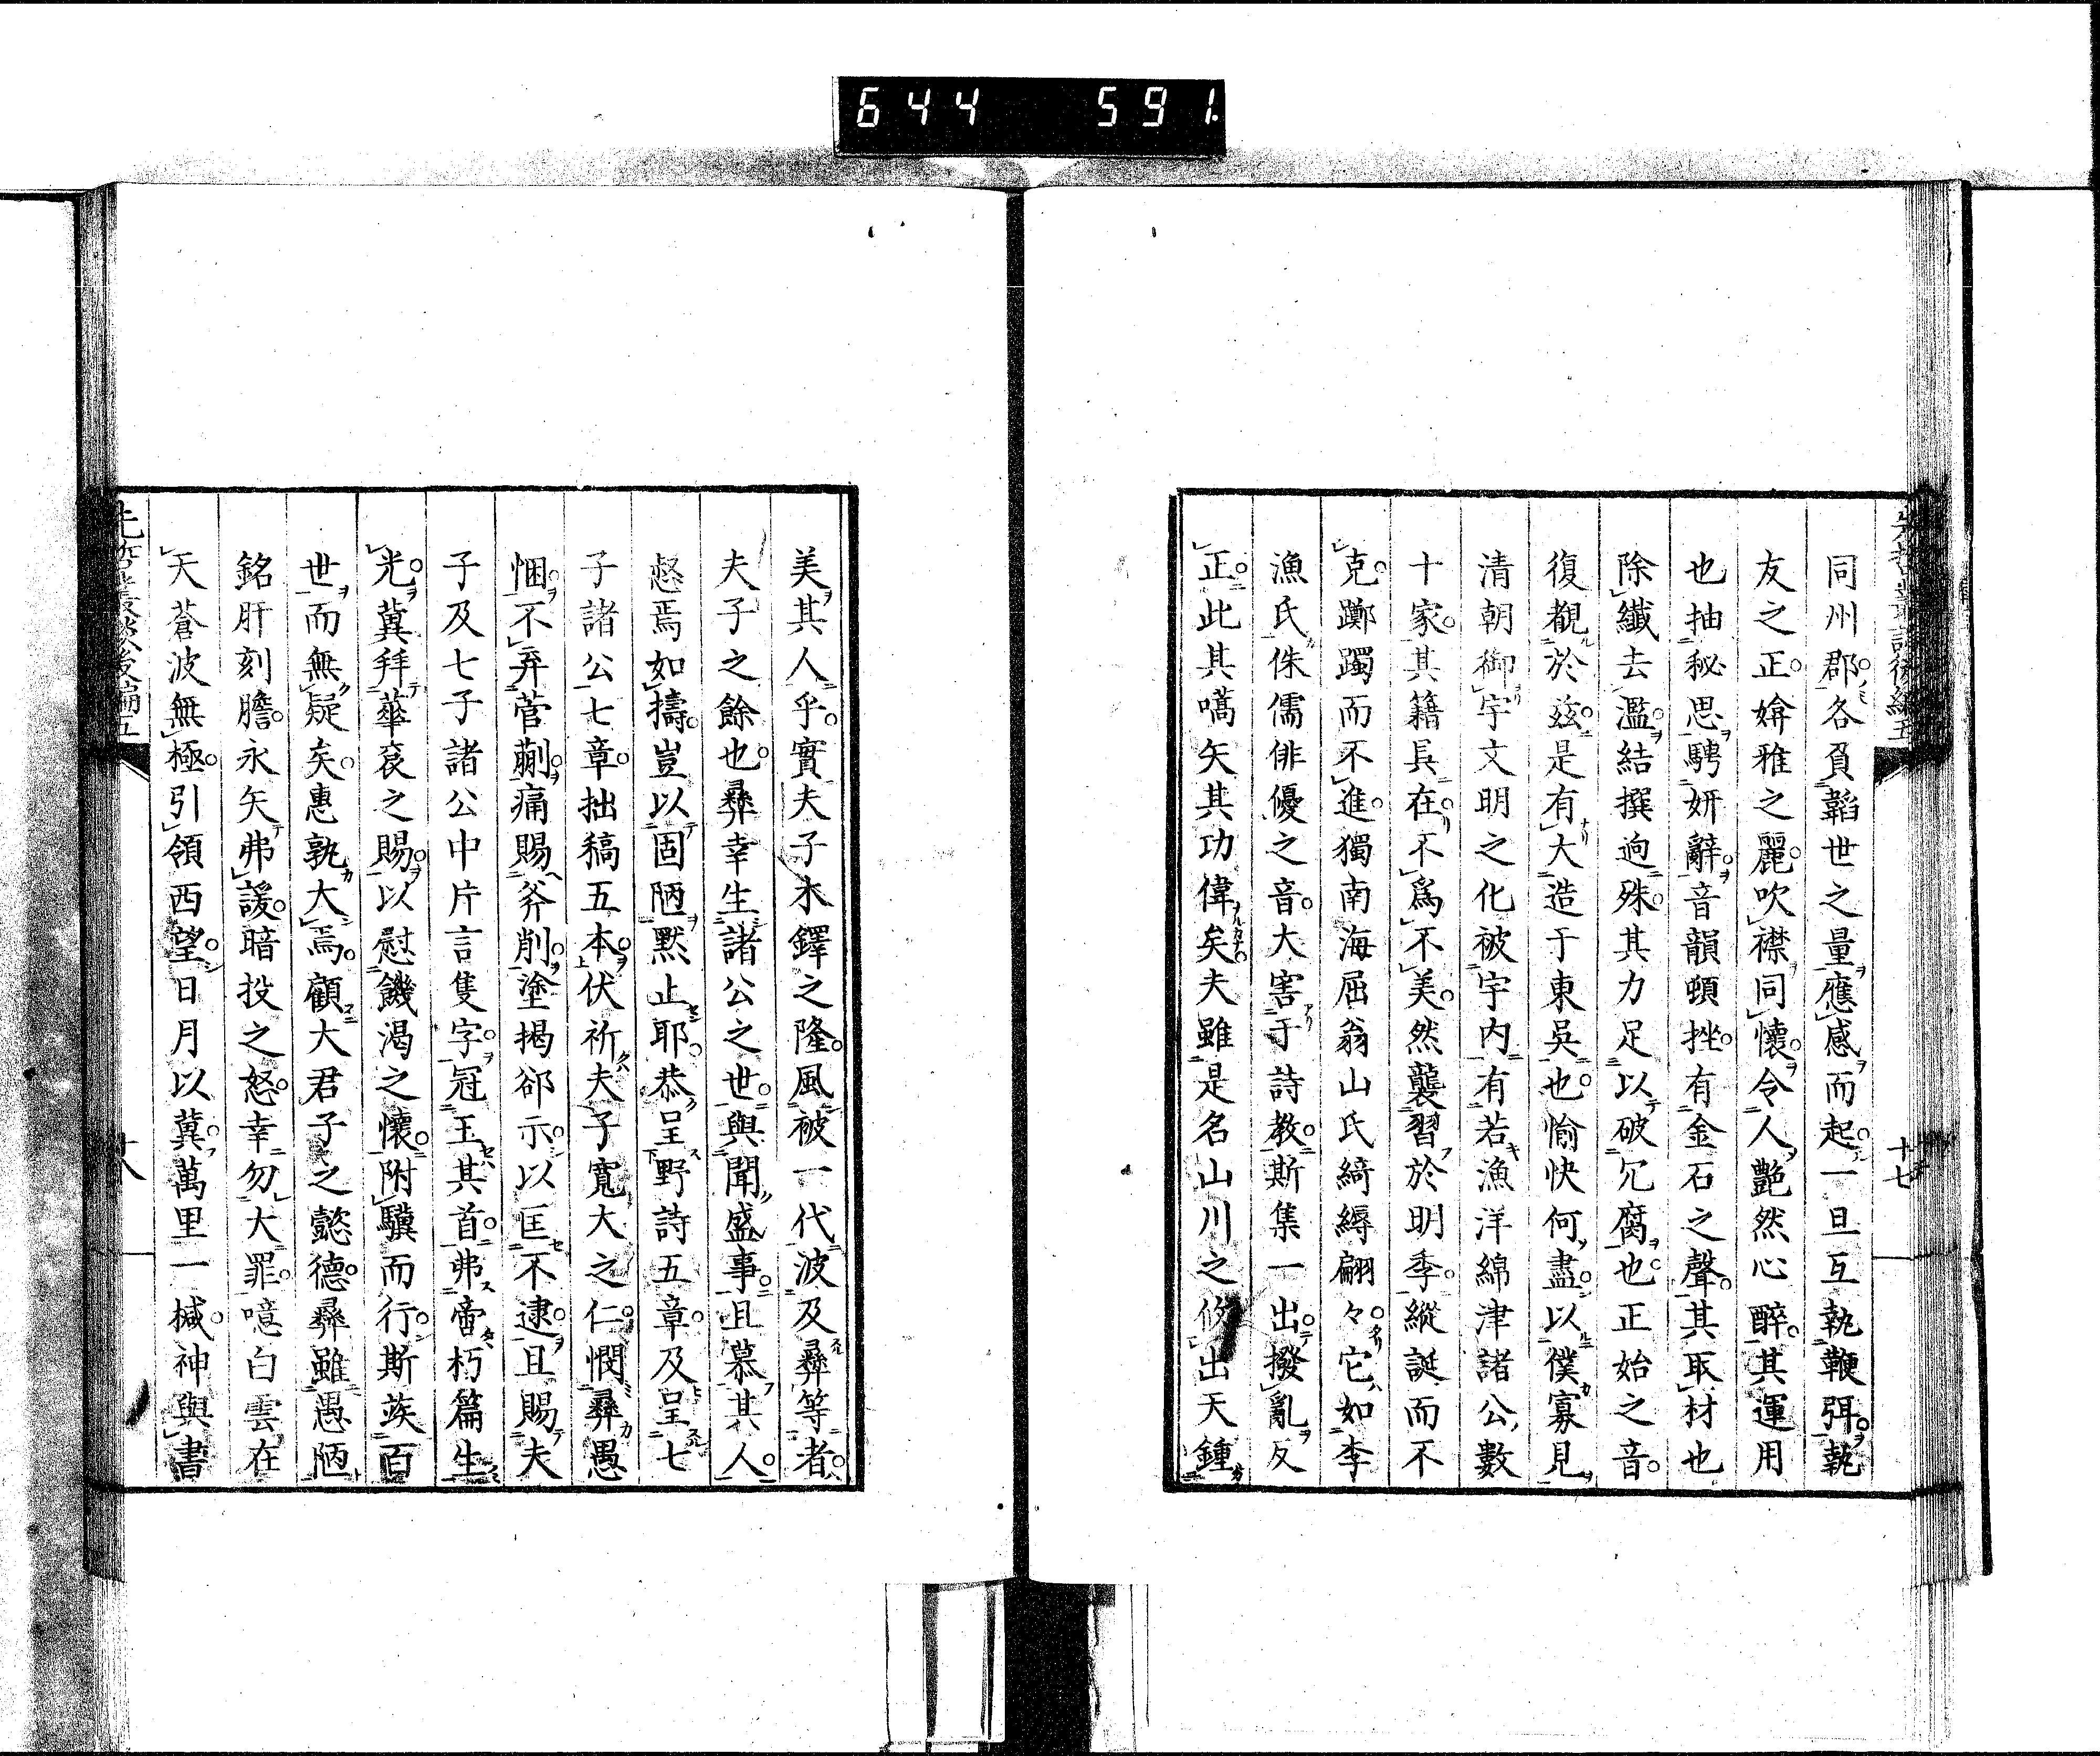 644 591.
同州郡各負韜世之量應感而起一旦互執鞭弭執
友之正婞雅之麗吹襟同懷令人艷然心醉其運用
也抽秘思騁妍辭音韻頓挫有金石之聲其取材也
除纖去濫結撰逈殊其力足以破冗腐也正始之音
復覩於茲是有大造于東吳也愉快何盡以僕寡見
清朝御宇文明之化被宇内有若漁洋綿津諸公數
十家其籍具在不爲不美然襲習於明季縱誕而不
克躑躅而不進獨南海屈翁山氏綺縟翩々它如李
漁氏侏儒俳優之音大害于詩教斯集一出撥亂反
正此其嚆矢其功偉矣夫雖是名山川之攸出天鍾
十七
美其人乎實夫子木鐸之隆風被一代波及彛等者
夫子之餘也彛幸生諸公之世與聞盛事且慕其人
惄焉如擣豈以固陋默止耶恭呈野詩五章及呈七
子諸公七章拙稿五本伏祈夫子寬大之仁憫彛愚
悃不弃菅蒯痛賜斧削塗揭郤示以匡不逮且賜夫
子及七子諸公中片言隻字冠玉其首弗啻朽篇生
光冀拜華袞之賜以慰饑渴之懷附驥而行斯蒺百
世而無疑矣惠孰大焉顧大君子之懿德彛雖愚陋
銘肝刻膽永矢弗諼暗投之怒幸勿大罪噫白雲在
天蒼波無極引領西望日月以冀萬里一槭神與書